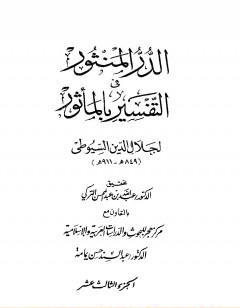 الدر المنثور
في
التفسير بالمأثور
لجلال الدين السيوطي
(٨٤٩هـ - ٩١١هـ)
تحقيق
الدكتور عبد الله بن عبد المحسن التركي
بالتعاون مع
مركز هجر للبحوث والدراسات العربية والإسلامية
الدكتور عبد السند حسن يمامة
الجزء الثالث عشر